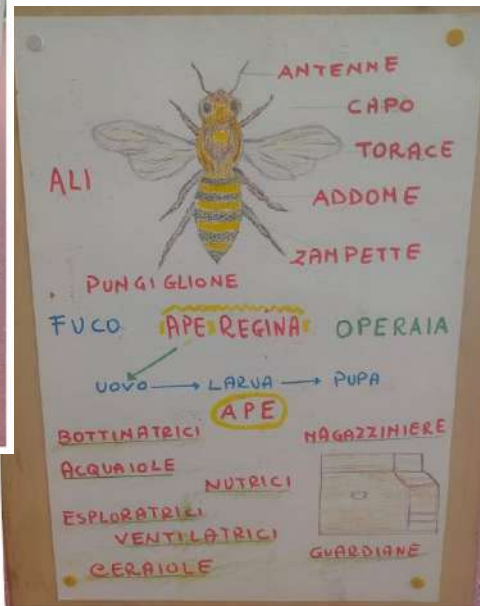 ANTENNE
CAPO
TORACE
ALI
ADDOME
ZAMPETTE
PUNGIGLIONE
FUCO APE REGINA OPERAIA
UOVO → LARVA → PUPA
APE
BOTTINATRICI MAGAZZINIERE
ACQUAIOLE
NUTRICI
ESPLORATRICI
VENTILATRICI
GUARDIANE
CERAIOLE